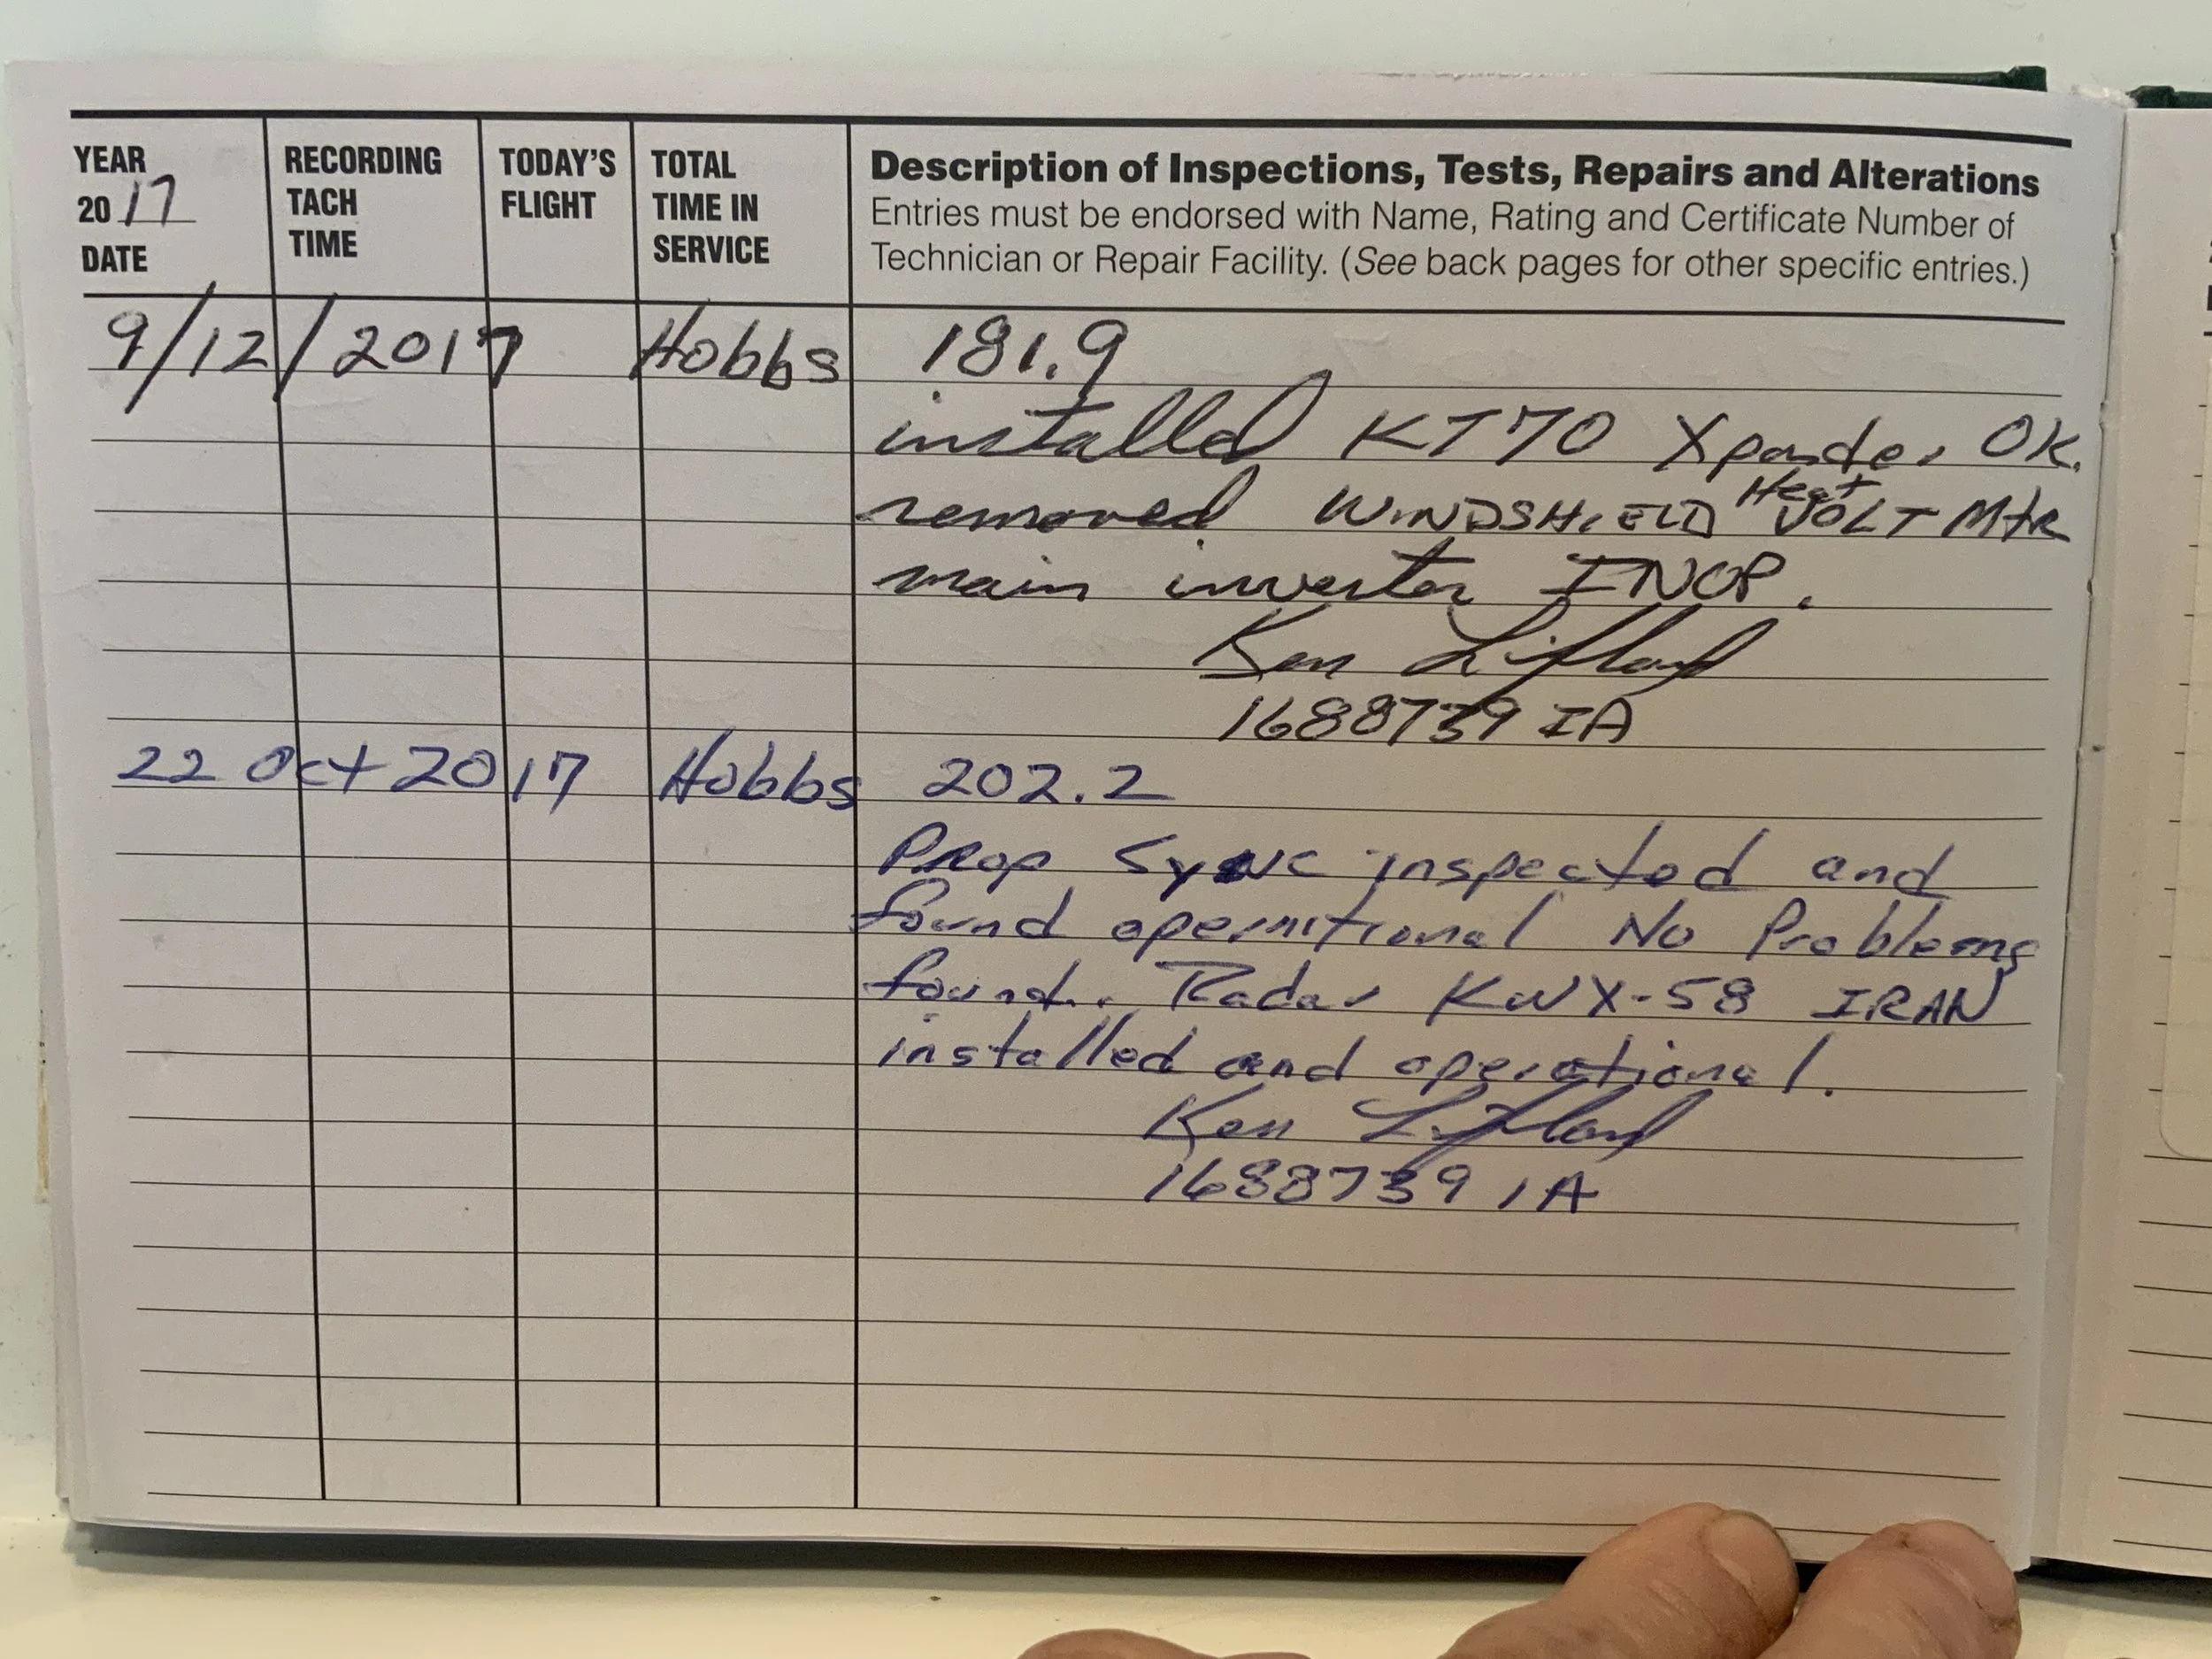 YEAR 2017 DATE
RECORDING TACH TIME
TODAY'S FLIGHT
TOTAL TIME IN SERVICE
Description of Inspections, Tests, Repairs and Alterations
Entries must be endorsed with Name, Rating and Certificate Number of
Technician or Repair Facility. (See back pages for other specific entries.)
9/12/2017 Hobbs 181.9
installed KT70 Xponder OK.
removed WINDSHIELD Heat VOLT Mtr
main inverter INOP.
Ken
1688739 IA
22 Oct 2017 Hobbs 202.2
Prop Sync inspected and
found opernitional No Problems
found. Radar KWX-58 IRAN
installed and operational.
Ken
1688739 IA